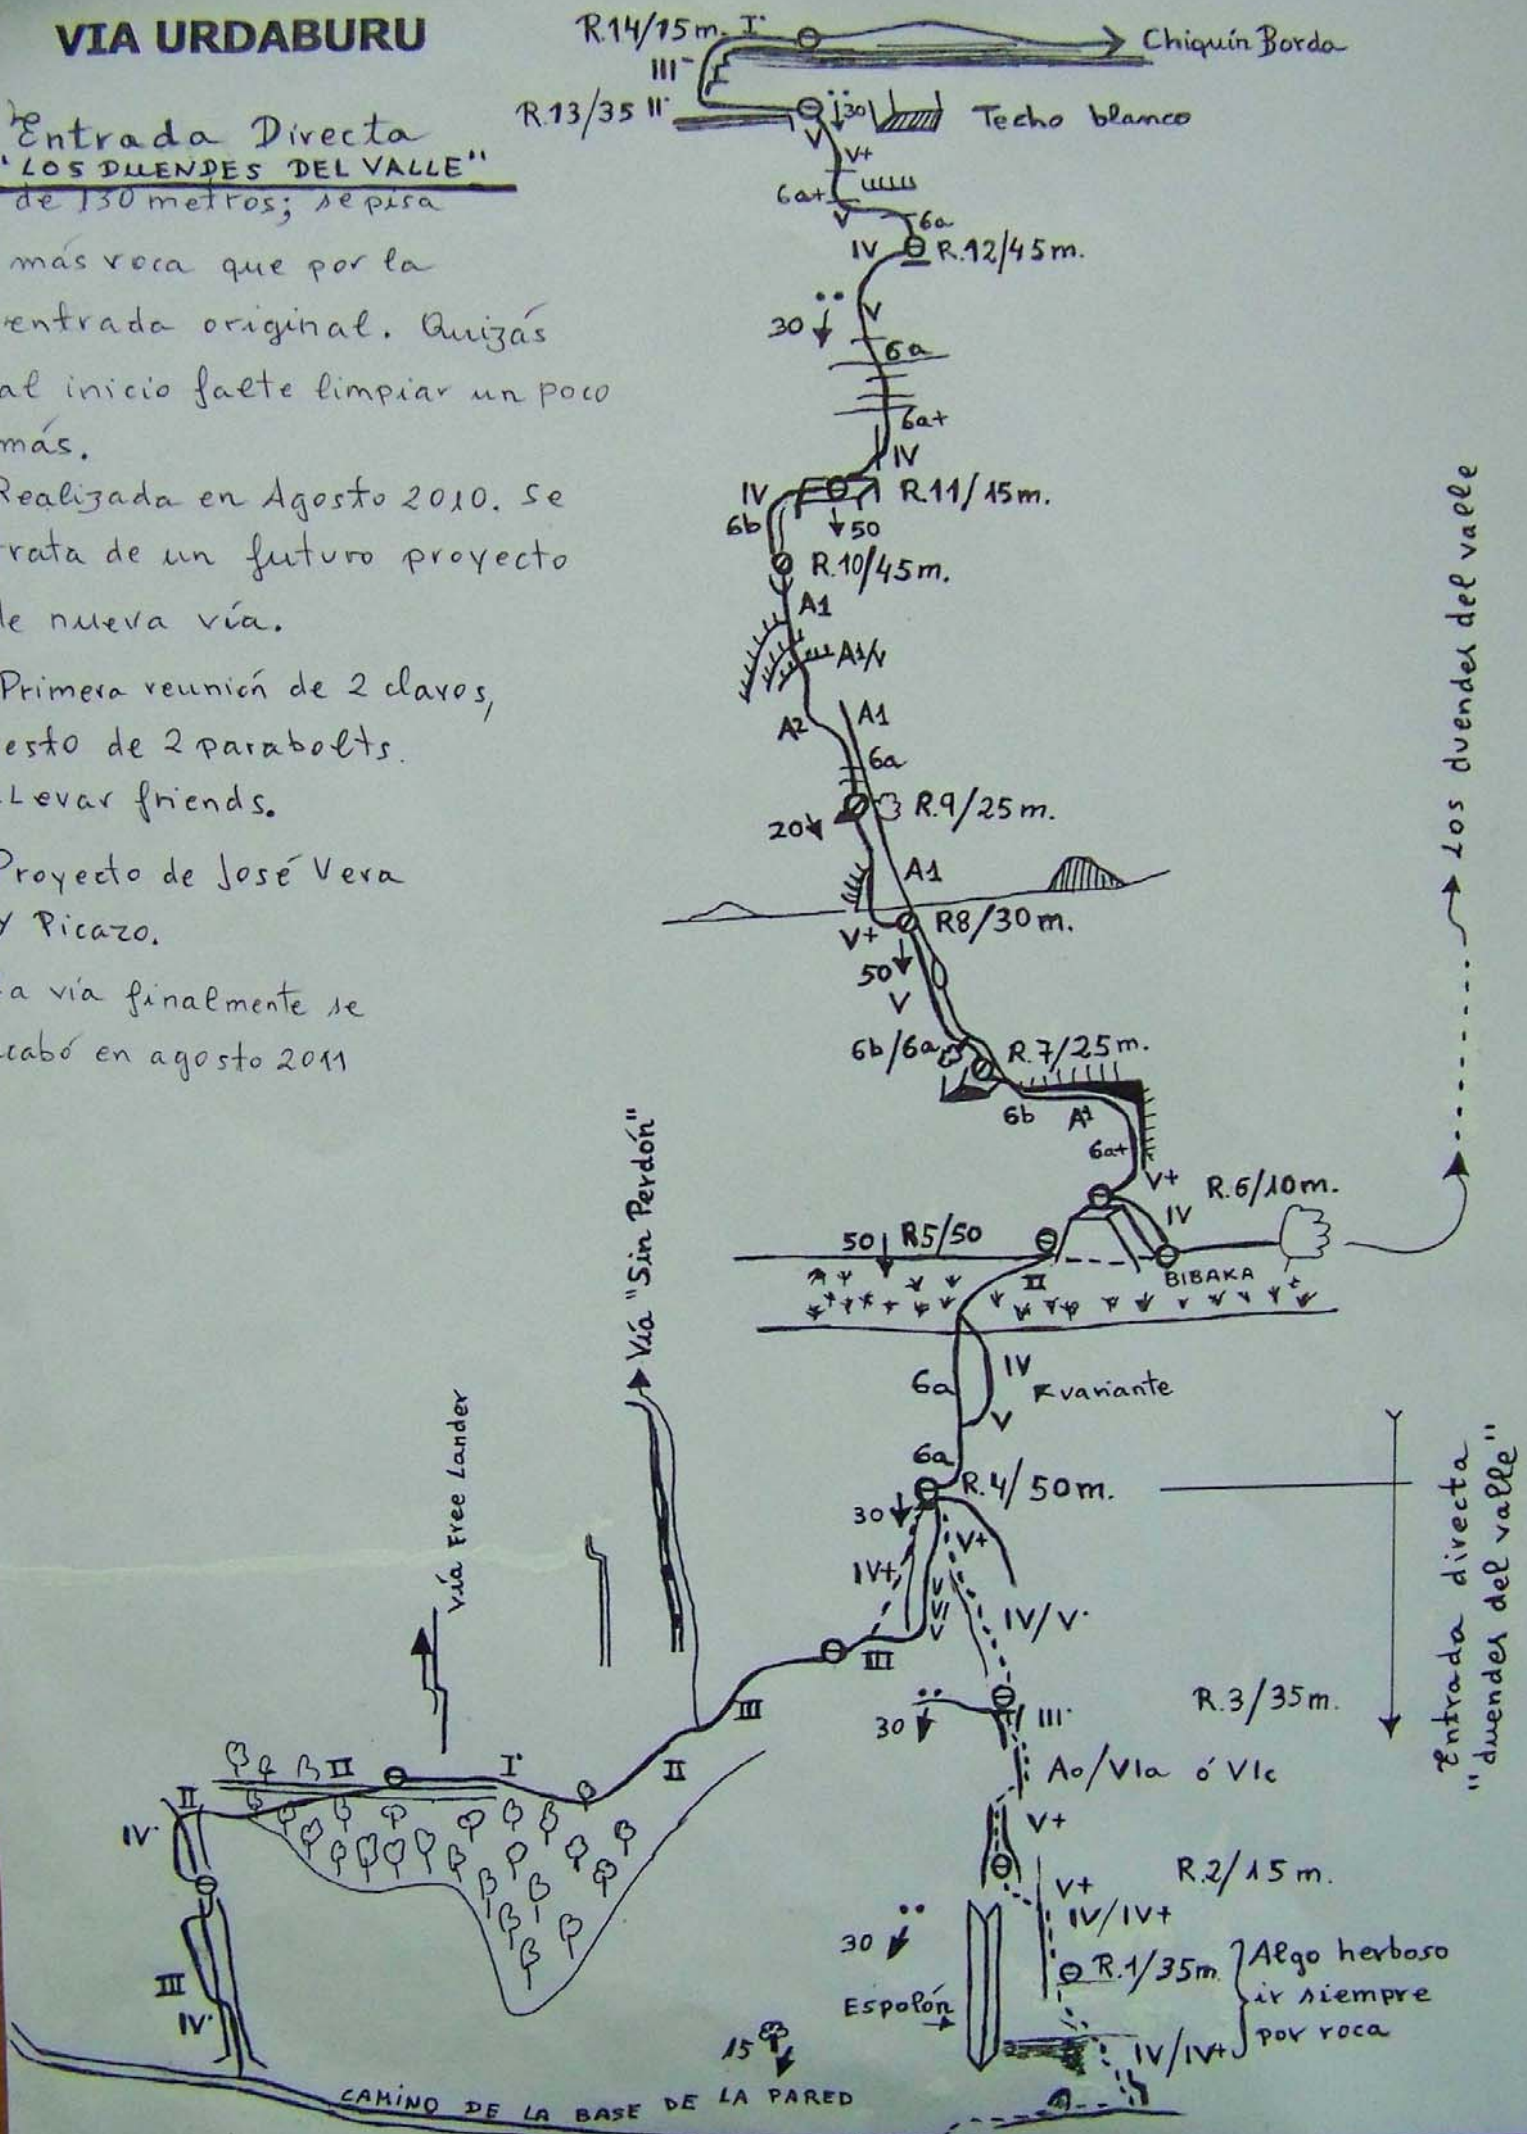 VIA URDABURU
Entrada Directa
"LOS DUENDES DEL VALLE"
de 130 metros; se pisa
más roca que por la
entrada original. Quizás
al inicio falte limpiar un poco
más.
Realizada en Agosto 2010. Se
trata de un futuro proyecto
de nueva vía.
Primera reunión de 2 clavos,
esto de 2 parabolts.
Llevar friends.
Proyecto de José Vera
y Picazo.
a vía finalmente se
cabó en agosto 2011
R.14/15m. I°
Chiquín Borda
III-
R.13/35 II°
30
Techo blanco
V
V+
6a+
V
6a
IV
R.12/45m.
V
30
6a
6a+
IV
IV
R.11/15m.
6b
50
R.10/45m.
A1
A1/V
A2
A1
6a
R.9/25m.
20
A1
V+
R8/30m.
50
V
6b/6a
R.7/25m.
6b
A1
6a+
V+
R.6/10m.
IV
50
R5/50
II
BIBAKA
IV
6a
variante
V
6a
R.4/50m.
30
V+
IV+
V
VI
V
IV/V°
III
R.3/35m.
30
III°
A0/VIa ó VIc
V+
R.2/15m.
V+
IV/IV+
30
R.1/35m.
Algo herboso
ir siempre
por roca
Espolón
IV/IV+
15
Los duendes del valle
Entrada directa
"duendes del valle"
Vía "Sin Perdón"
vía Free Lander
III
II
I°
II
II
IV°
III
IV°
CAMINO DE LA BASE DE LA PARED